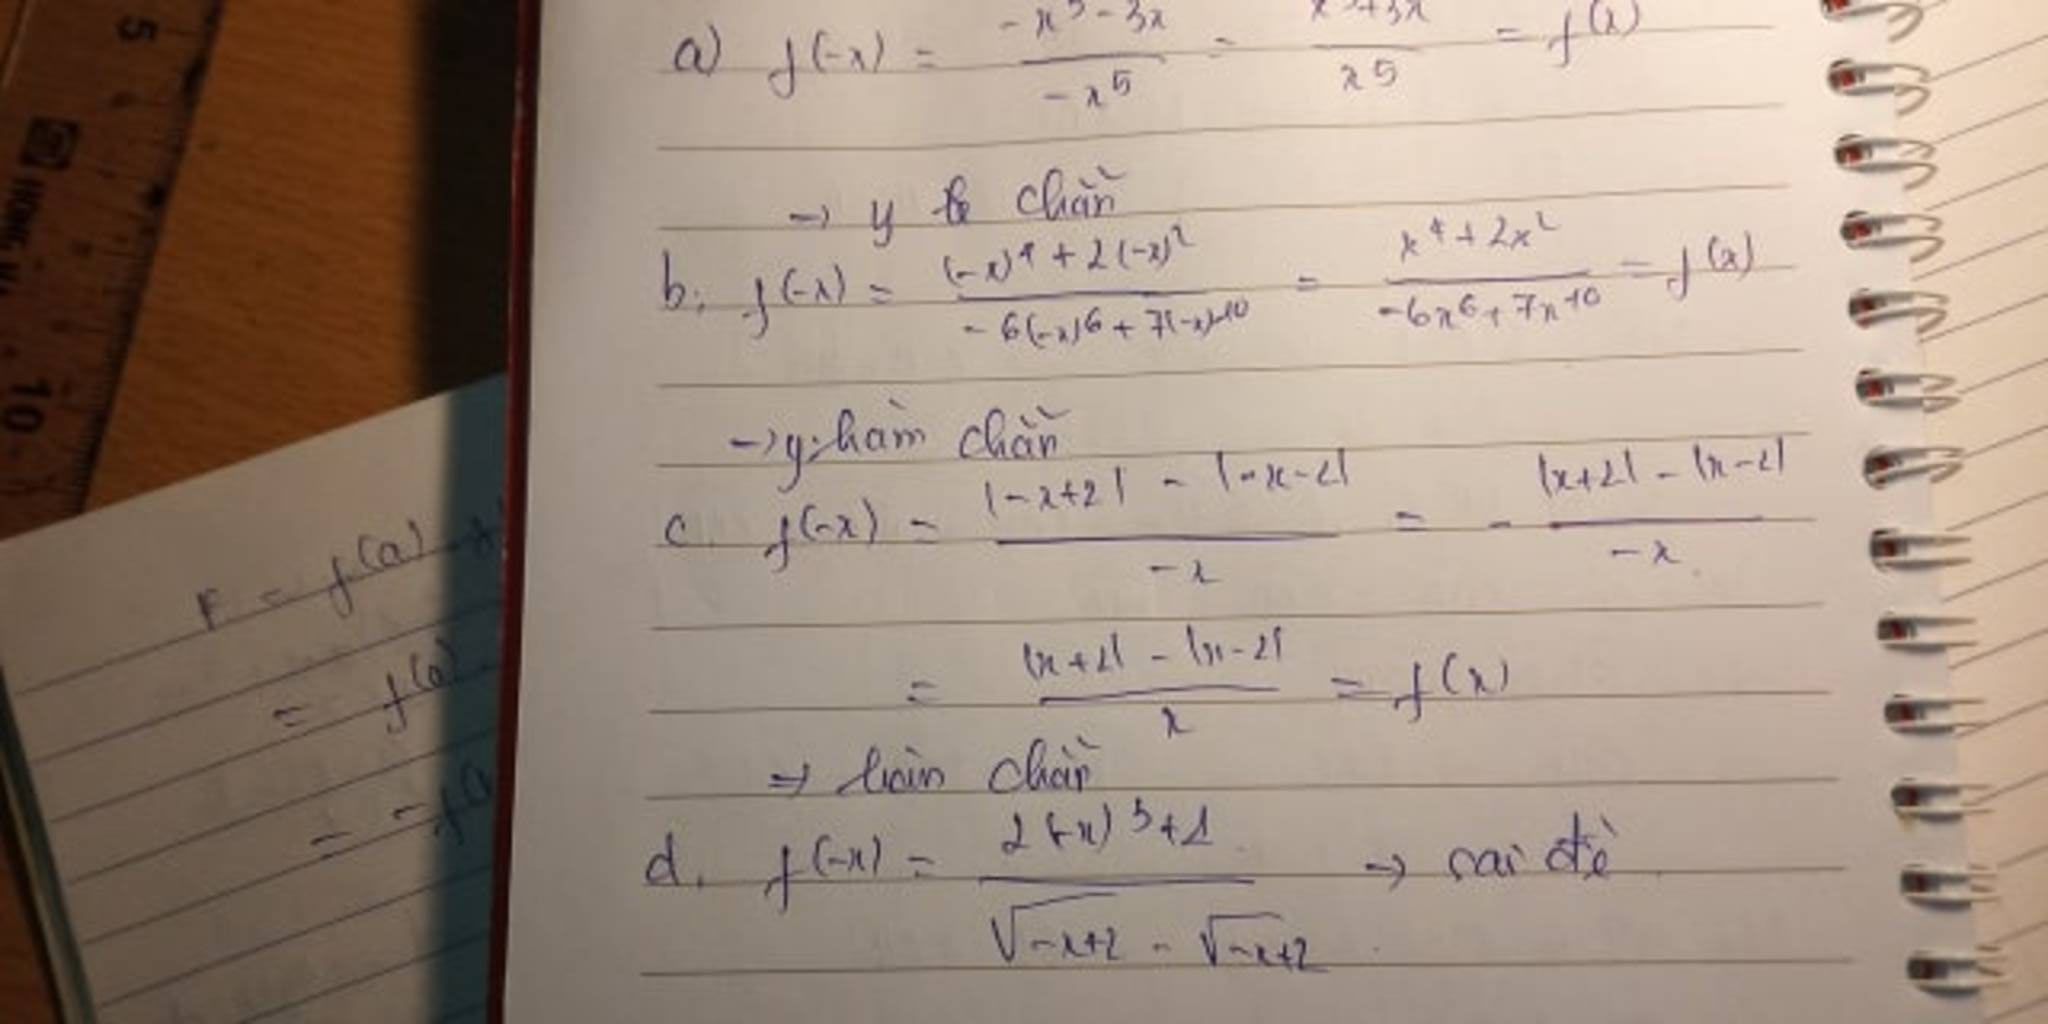 a) f(-x) = (-x⁵ - 3x)/(-x⁵) = (x⁵ + 3x)/(x⁵) = f(x)
→ y chẵn
b. f(-x) = ((-x)⁴ + 2(-x)²)/(-6(-x)⁶ + 7(-x)¹⁰) = (x⁴ + 2x²)/(-6x⁶ + 7x¹⁰) = f(x)
→ y: hàm chẵn
c. f(-x) = (|-x+2| - |-x-2|)/(-x) = - (|x+2| - |x-2|)/(-x)
= (|x+2| - |x-2|)/x = f(x)
→ hàm chẵn
d. f(-x) = (2(-x)³+1)/(√-x+2 - √-x+2) → sai đề
F = f(a)
= f(a)
= -f(
5
10